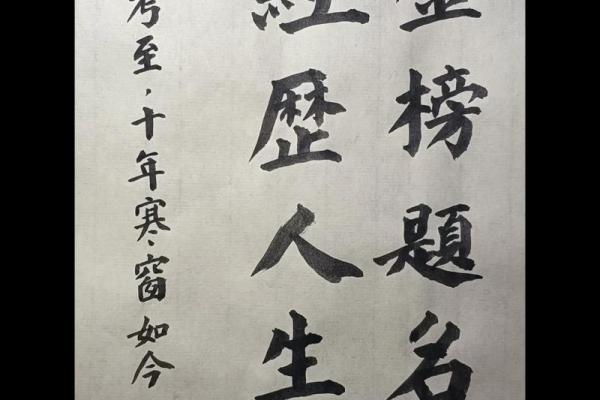 榜題名
經歷人生
考至，十年寒窗如今